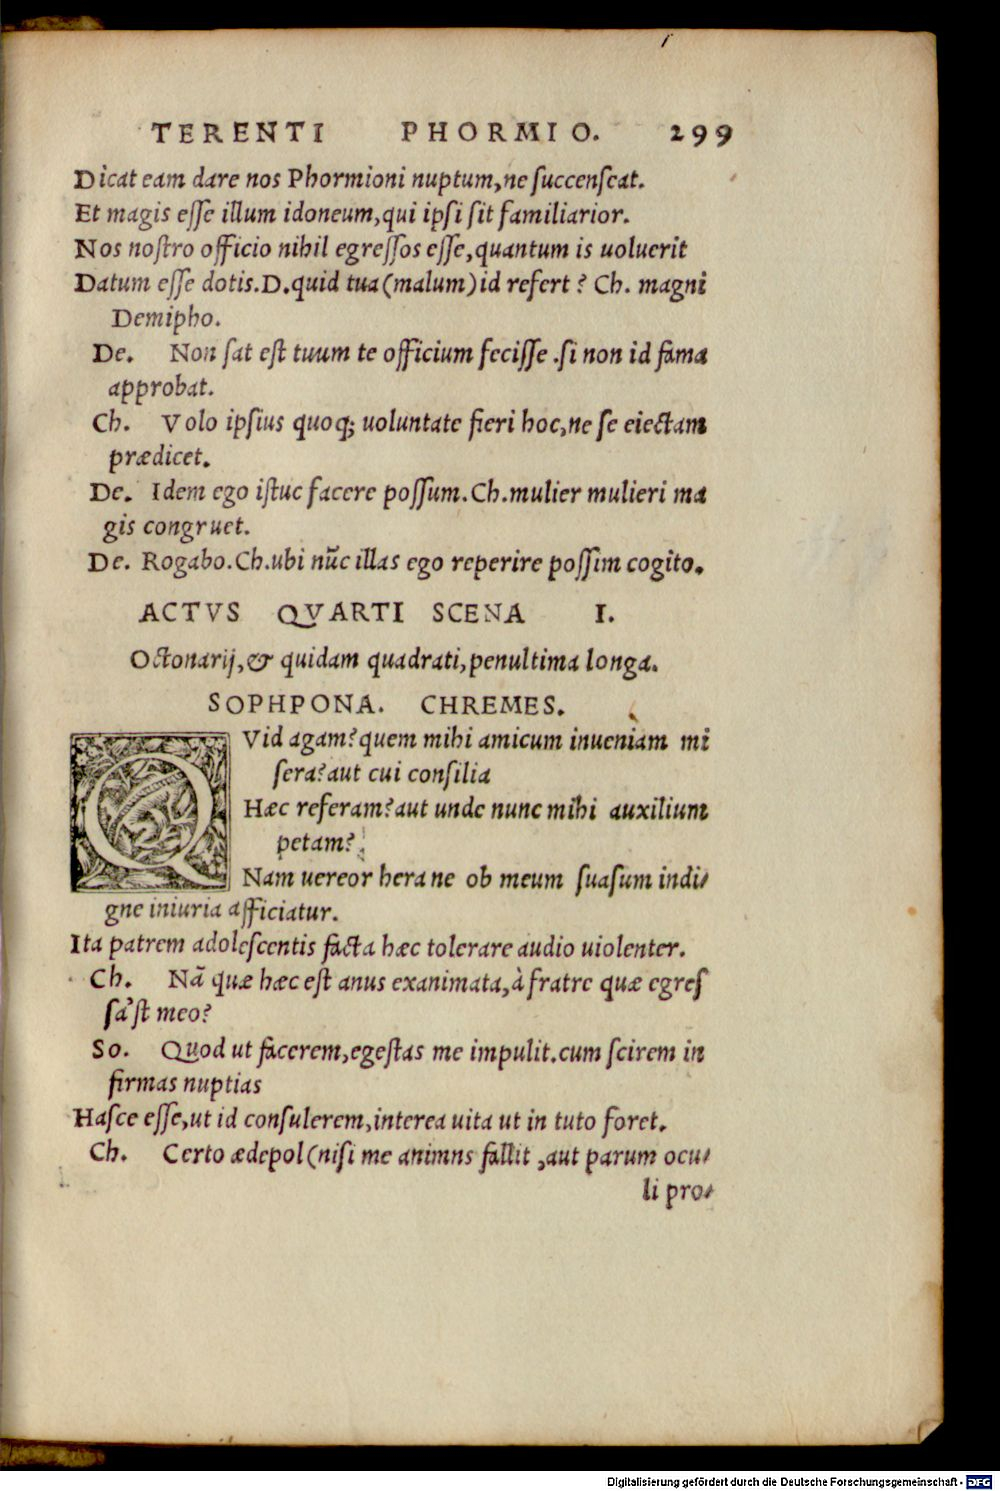 TERENTI PHORMIO. 299
Dicat eam dare nos Phormioni nuptum, ne succenseat.
Et magis esse illum idoneum, qui ipsi sit familiarior.
Nos nostro officio nihil egressos esse, quantum is uoluerit
Datum esse dotis. D. quid tua (malum) id refert? Ch. magni
Demipho.
De. Non sat est tuum te officium fecisse .si non id fama
approbat.
Ch. Volo ipsius quoq; uoluntate fieri hoc, ne se eiectam
prædicet.
De. Idem ego istuc facere possum. Ch. mulier mulieri ma
gis congruet.
De. Rogabo. Ch. ubi nūc illas ego reperire possim cogito.
ACTVS QVARTI SCENA I.
Octonarij, & quidam quadrati, penultima longa.
SOPHPONA. CHREMES.
QVid agam? quem mihi amicum inueniam mi
sera? aut cui consilia
Hæc referam? aut unde nunc mihi auxilium
petam?
Nam uereor hera ne ob meum suasum indi-
gne iniuria afficiatur.
Ita patrem adolescentis facta hæc tolerare audio uiolenter.
Ch. Nā quæ hæc est anus exanimata, à fratre quæ egres
sa'st meo?
So. Quod ut facerem, egestas me impulit. cum scirem in
firmas nuptias
Hasce esse, ut id consulerem, interea uita ut in tuto foret.
Ch. Certo ædepol (nisi me animns fallit , aut parum ocu-
li pro-
Digitalisierung gefördert durch die Deutsche Forschungsgemeinschaft - DFG